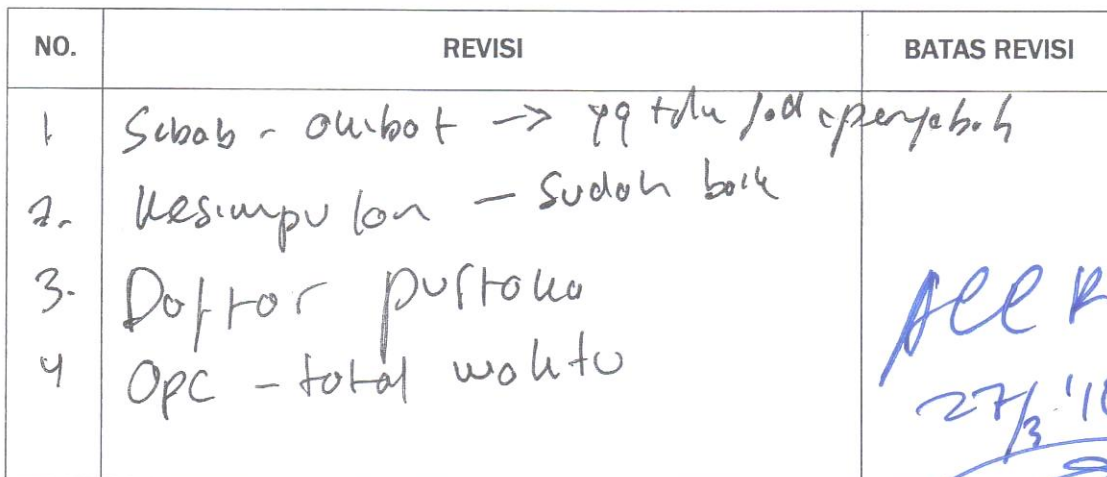 NO. REVISI BATAS REVISI
1 Sebab - akibat → yg tdk jadi penyebab
2. Kesimpulan - Sudah baik
3. Daftar pustaka
4 OPC - total waktu
Acc
27/3 '1